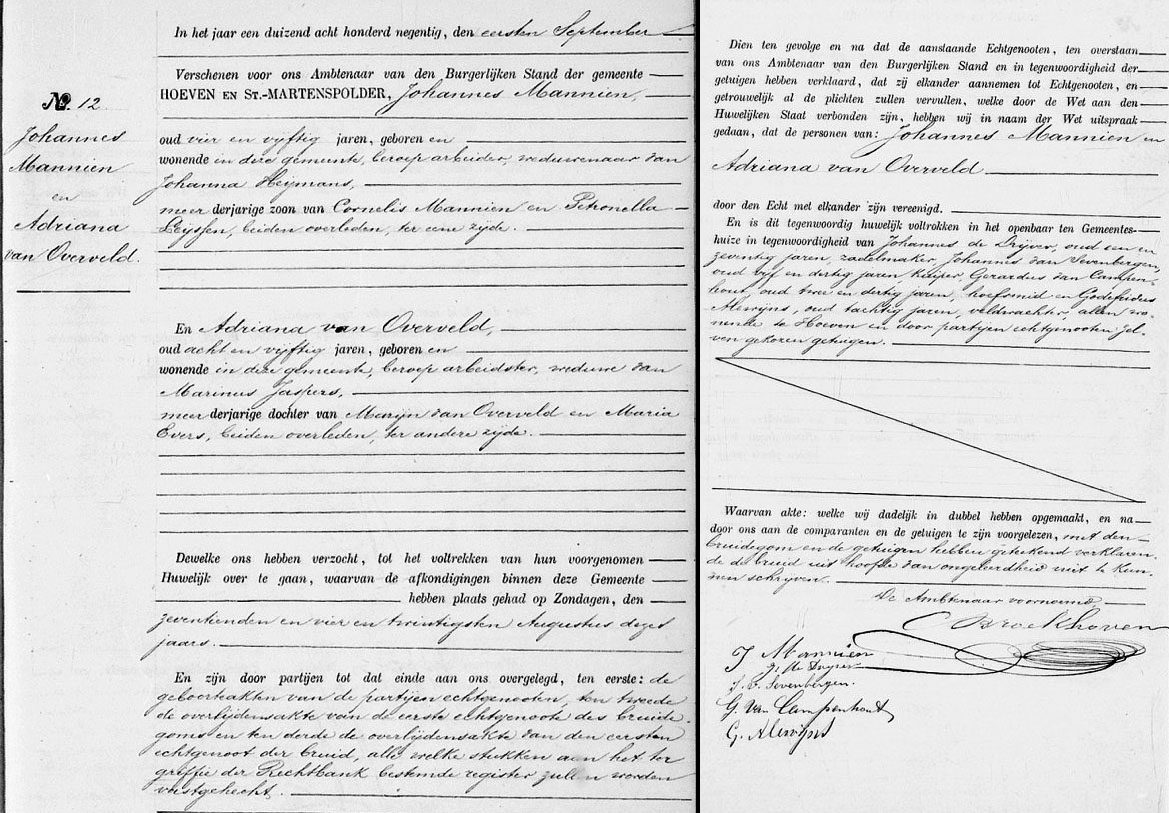 No. 12
Johannes
Mannien
en
Adriana
van Overveld.
In het jaar een duizend acht honderd negentig, den eersten September
Verschenen voor ons Ambtenaar van den Burgerlijken Stand der gemeente
HOEVEN EN ST.-MARTENSPOLDER, Johannes Mannien,
oud vier en vijftig jaren, geboren en
wonende in deze gemeente, beroep arbeider, weduwenaar van
Johanna Heijmans,
meerderjarige zoon van Cornelis Mannien en Petronella
Leyssen, beiden overleden, ter eene zijde.
En Adriana van Overveld,
oud acht en vijftig jaren, geboren en
wonende in deze gemeente, beroep arbeidster, weduwe van
Marinus Jaspers,
meerderjarige dochter van Marijn van Overveld en Maria
Evers, beiden overleden, ter andere zijde.
Dewelke ons hebben verzocht, tot het voltrekken van hun voorgenomen
Huwelijk over te gaan, waarvan de afkondigingen binnen deze Gemeente
hebben plaats gehad op Zondagen, den
zeventienden en vier en twintigsten Augustus dezes
jaars.
En zijn door partijen tot dat einde aan ons overgelegd, ten eerste: de
geboorteakten van de partijen echtgenooten, ten tweede
de overlijdensakte van de eerste echtgenoote des bruide-
goms en ten derde de overlijdensakte van den eersten
echtgenoot der bruid, alle welke stukken aan het ter
griffie der Rechtbank bestemde register zullen worden
vastgehecht.
Dien ten gevolge en na dat de aanstaande Echtgenooten, ten overstaan
van ons Ambtenaar van den Burgerlijken Stand en in tegenwoordigheid der
getuigen hebben verklaard, dat zij elkander aannemen tot Echtgenooten, en
getrouwelijk al de plichten zullen vervullen, welke door de Wet aan den
Huwelijken Staat verbonden zijn, hebben wij in naam der Wet uitspraak
gedaan, dat de personen van: Johannes Mannien en
Adriana van Overveld
door den Echt met elkander zijn vereenigd.
En is dit tegenwoordig huwelijk voltrokken in het openbaar ten Gemeentes-
huize in tegenwoordigheid van Johannes de Drijver, oud een en
zeventig jaren, zadelmaker, Johannes van Sevenbergen,
oud vijf en dertig jaren, kuiper, Gerardus van Campen-
hout, oud twee en dertig jaren, hoefsmid en Godefridus
Alewijns, oud tachtig jaren, veldwachter, allen wo-
nende te Hoeven en door partijen echtgenooten zel-
ven gekozen getuigen.
Waarvan akte: welke wij dadelijk in dubbel hebben opgemaakt, en na
door ons aan de comparanten en de getuigen te zijn voorgelezen, met den
bruidegom en de getuigen hebben geteekend verklaren-
de de bruid uit hoofde van ongeleerdheid niet te kun-
nen schrijven.
De Ambtenaar voornoemd
C Broekhoven
J Mannien
J. de Dryver
J. v. Sevenbergen.
G. Van Campenhout
G. Alewijns